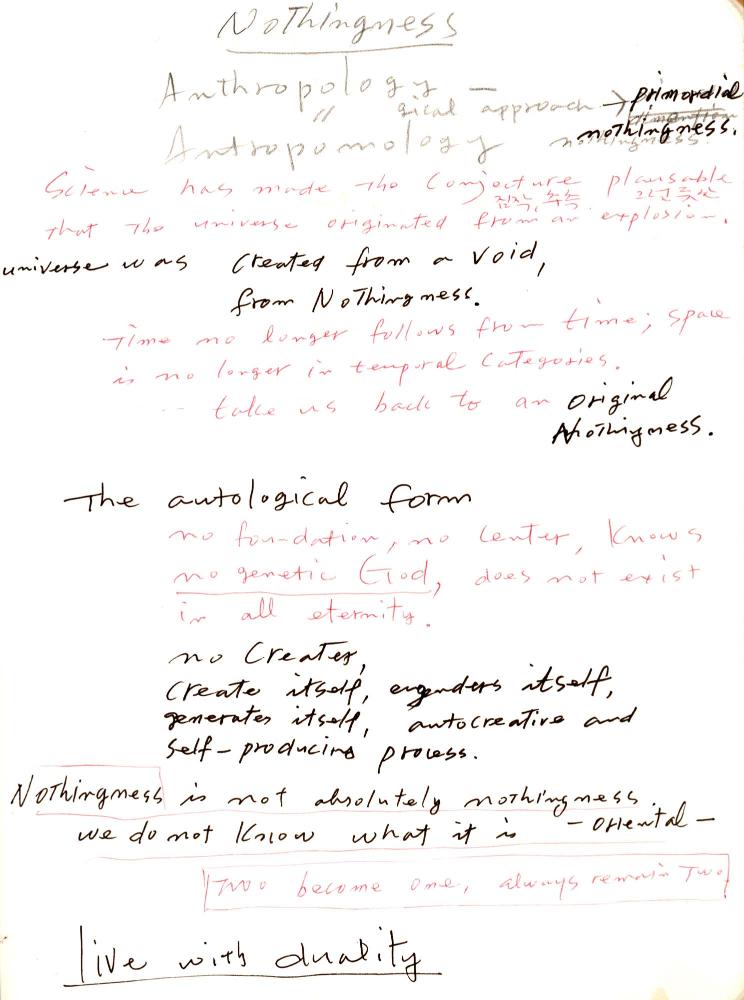 Nothingness
Anthropology —
〃 gical approach → primordial
Antropomology nothingness.
nothingness.
Science has made the Conjecture plausable
짐작, 추측
that the universe originated from an explosion.
universe was Created from a void,
from Nothingness.
Time no longer follows from time; space
is no longer in temporal Categories.
-- take us back to an original
Nothingness.
The autological form
no foundation, no center, Knows
no genetic God, does not exist
in all eternity.
no Creater,
Create itself, engenders itself,
generates itself, autocreative and
Self-producing process.
Nothingness is not absolutely nothingness.
we do not Know what it is - oriental -
Two become one, always remain Two
live with duality